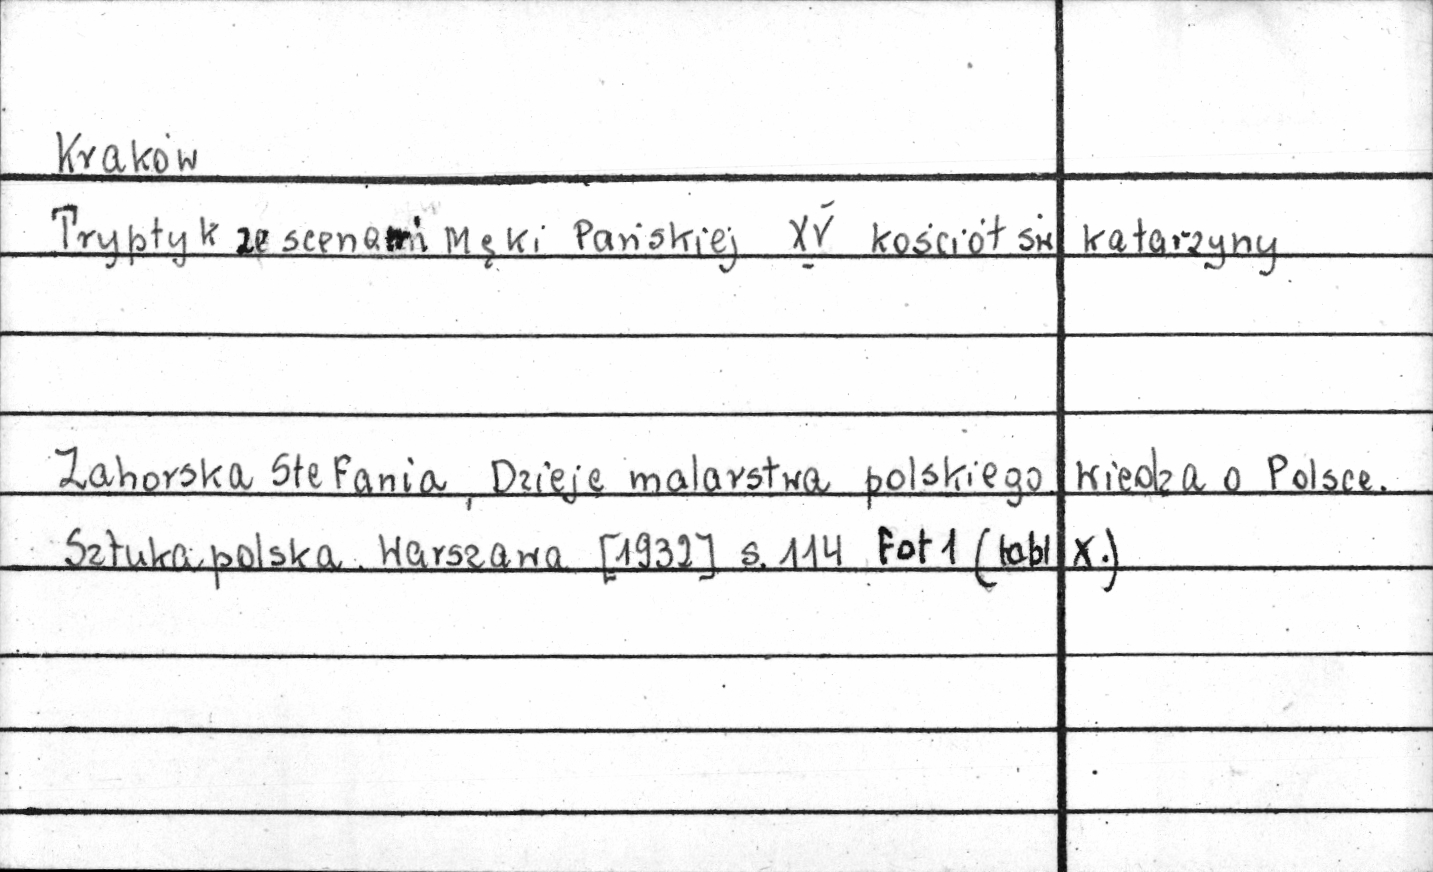 Kraków
Tryptyk ze scenami Męki Pańskiej XV kościół św Katarzyny
Zahorska Stefania, Dzieje malarstwa polskiego. Wiedza o Polsce.
Sztuka polska. Warszawa [1932] s. 114 Fot 1 (tabl X.)